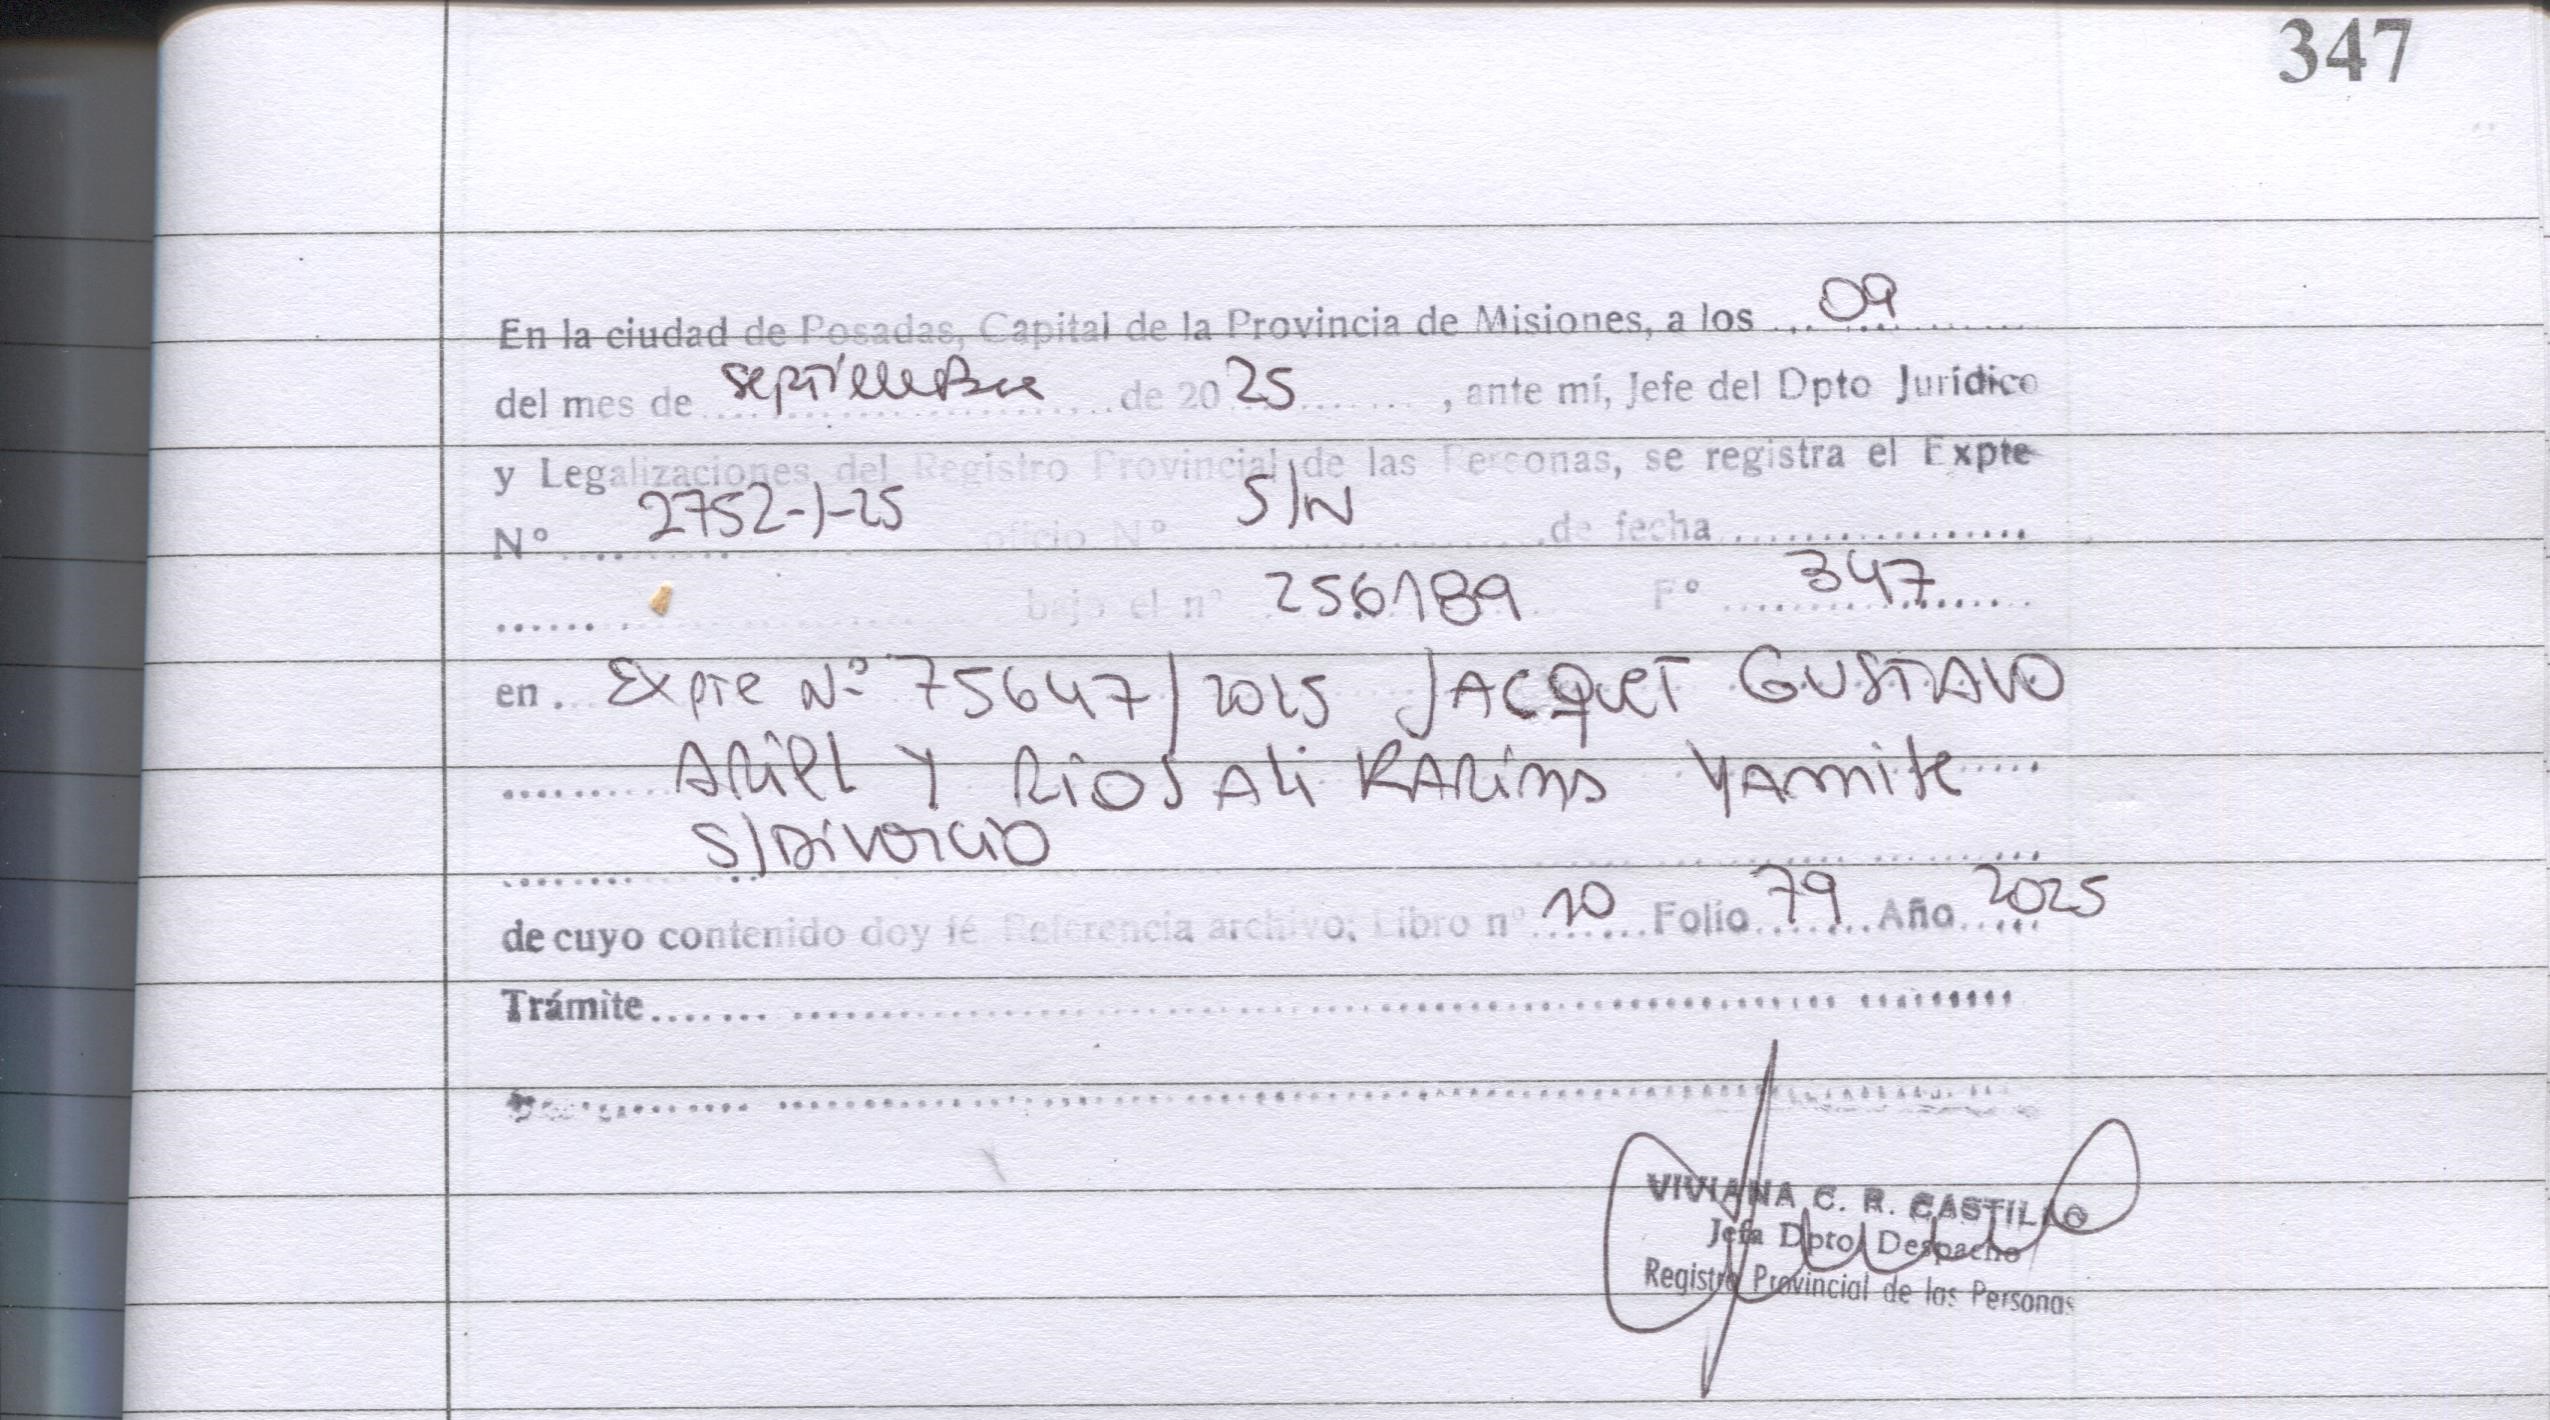 347
En la ciudad de Posadas, Capital de la Provincia de Misiones, a los 09
del mes de septiembre de 2025, ante mí, Jefe del Dpto Jurídico
y Legalizaciones del Registro Provincial de las Personas, se registra el Expte
Nº 2752-J-25 oficio Nº S/N de fecha
bajo el nº 256189 Fº 347
en Expte Nº 75647/2025 JACQUET GUSTAVO
ARIEL Y RIOS ALI KARINA YAMILE
S/DIVORCIO
de cuyo contenido doy fé. Referencia archivo: Libro nº 10 Folio 79 Año 2025
Trámite
VIVIANA C. R. CASTILLO
Jefa Dpto Despacho
Registro Provincial de las Personas